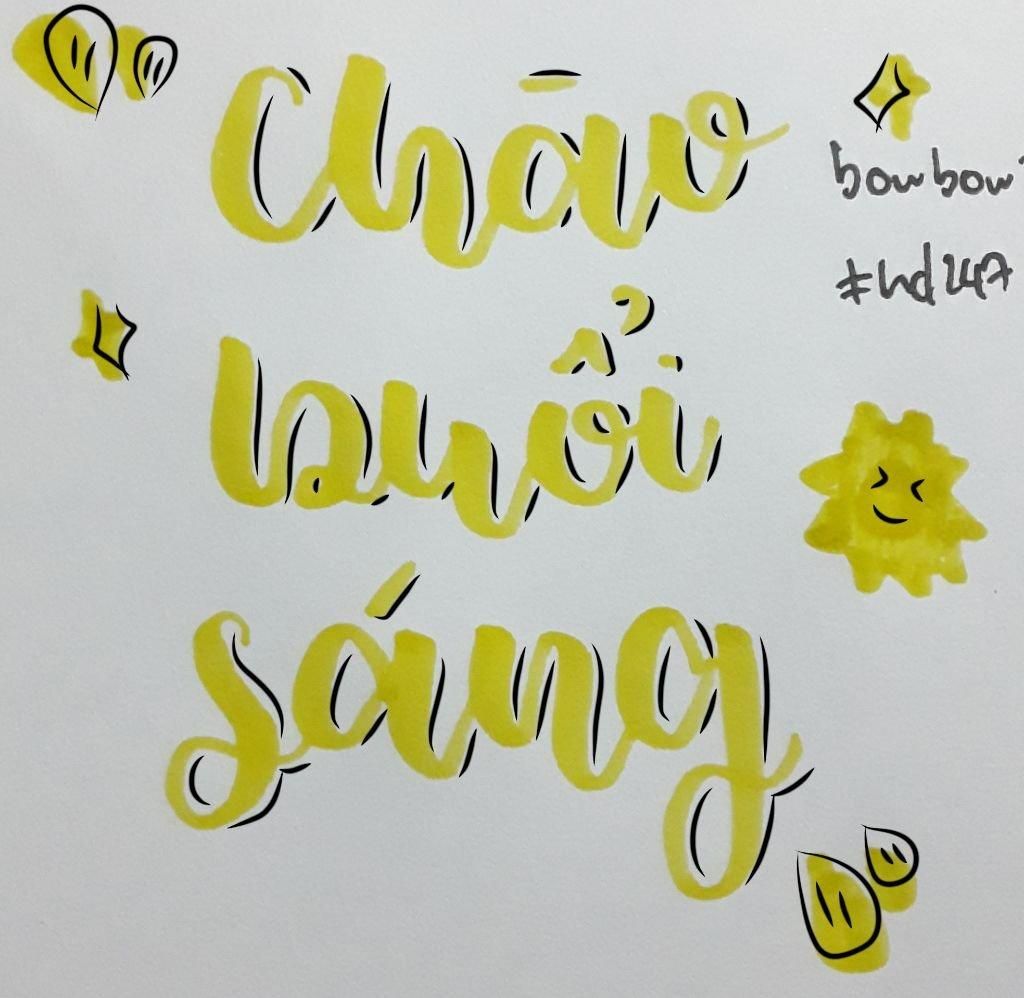 Chào
bowbow
#hd247
buổi
sáng